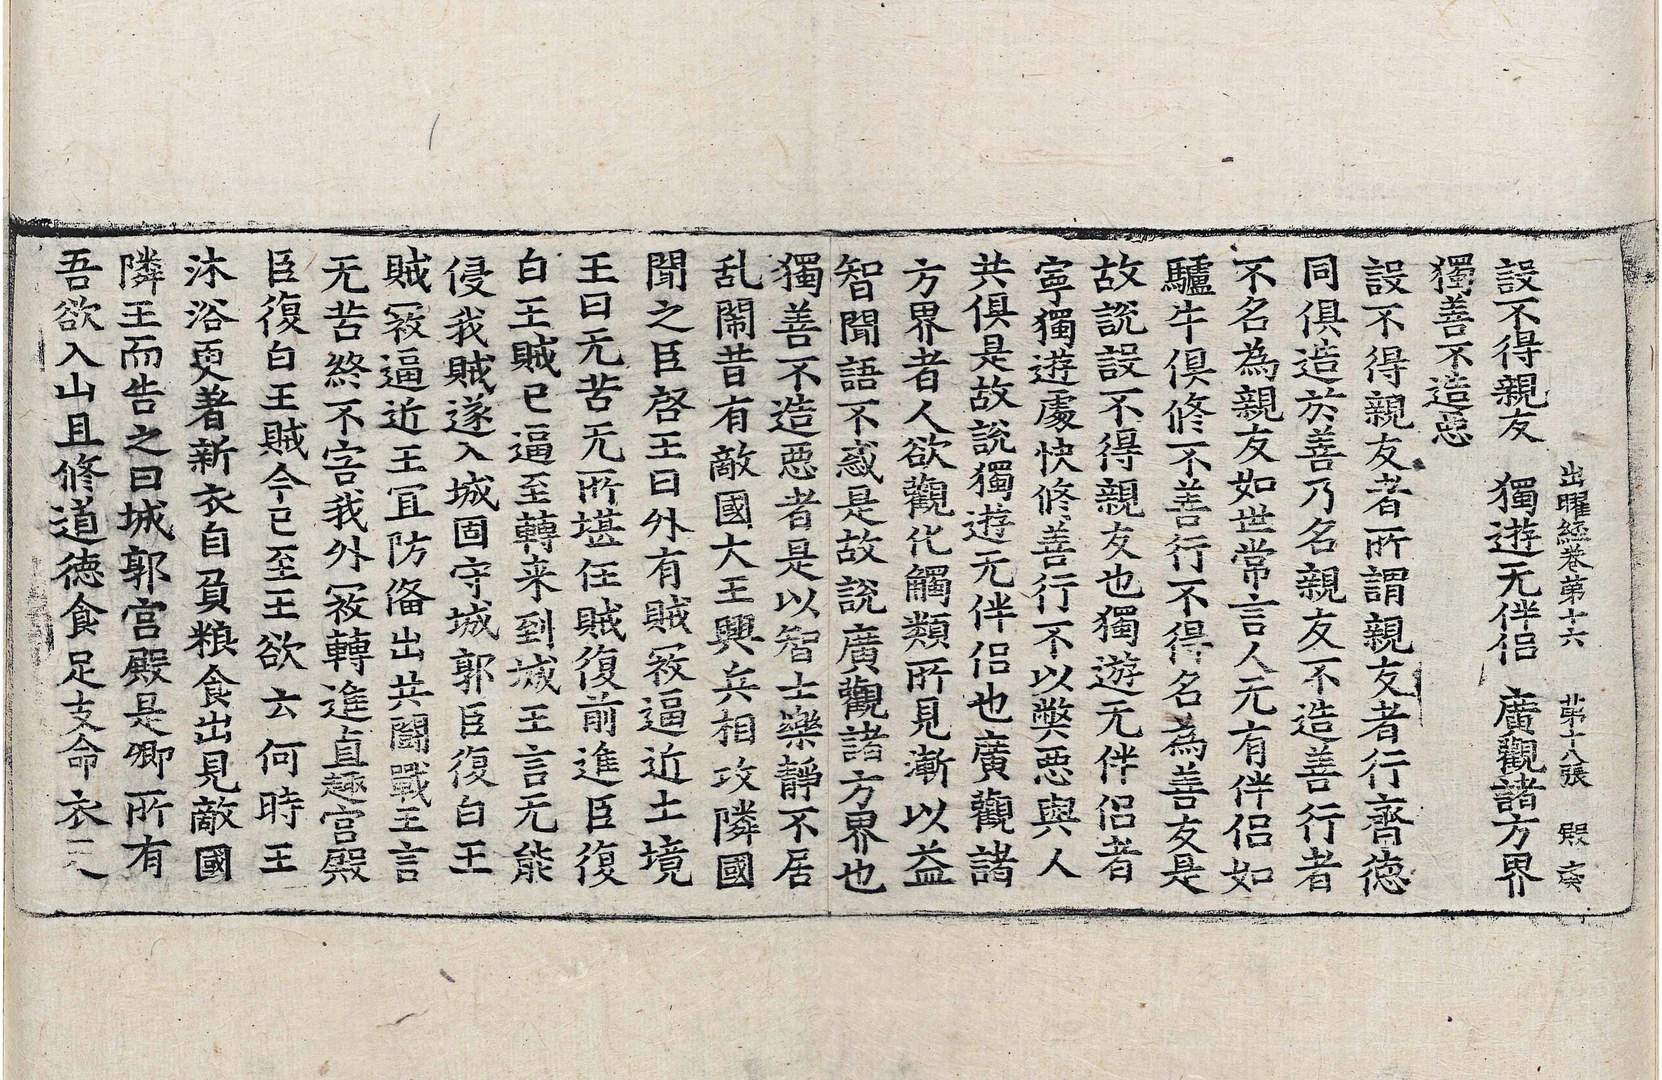 出曜經卷第十六 第十八張 殷
設不得親友 獨遊无伴侶 廣觀諸方界
獨善不造惡
設不得親友者所謂親友者行齊德
同俱造於善乃名親友不造善行者
不名為親友如世常言人无有伴侶如
驢牛俱修不善行不得名為善友是
故說設不得親友也獨遊无伴侶者
寧獨遊處快修善行不以弊惡與人
共俱是故說獨遊无伴侶也廣觀諸
方界者人欲觀化觸類所見漸以益
智聞語不惑是故說廣觀諸方界也
獨善不造惡者是以智士樂靜不居
乱鬧昔有敵國大王興兵相攻隣國
聞之臣啓王曰外有賊寇逼近土境
王曰无苦无所堪任賊復前進臣復
白王賊已逼至轉来到城王言无能
侵我賊遂入城固守城郭臣復白王
賊寇逼近王宜防俻出共鬪戰王言
无苦終不害我外寇轉進直趣宮殿
臣復白王賊今已至王欲云何時王
沐浴更著新衣自負粮食出見敵國
隣王而告之曰城郭宮殿是卿所有
吾欲入山且修道德食足支命衣